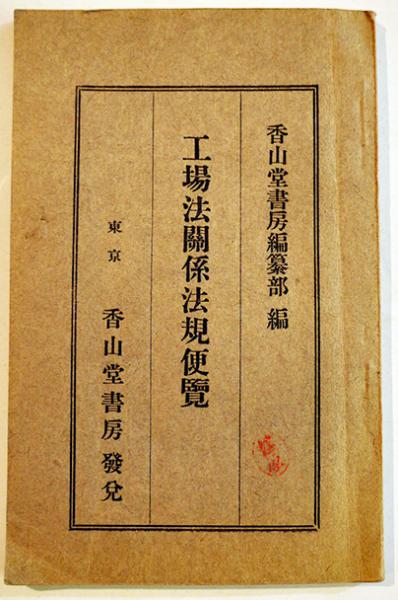 香山堂書房編纂部 編
工場法關係法規便覽
東京 香山堂書房 發兌